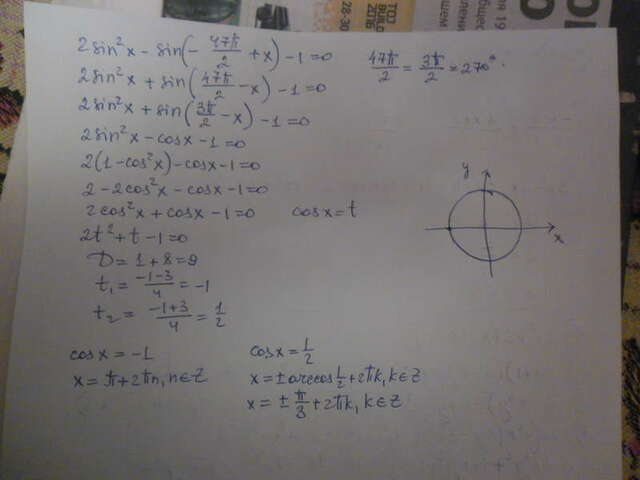 2sin²x - sin(-47π/2 + x) - 1 = 0
47π/2 = 3π/2 = 270°.
2sin²x + sin(47π/2 - x) - 1 = 0
2sin²x + sin(3π/2 - x) - 1 = 0
2sin²x - cosx - 1 = 0
2(1 - cos²x) - cosx - 1 = 0
2 - 2cos²x - cosx - 1 = 0
2cos²x + cosx - 1 = 0 cosx = t
2t² + t - 1 = 0
D = 1 + 8 = 9
t₁ = (-1-3)/4 = -1
t₂ = (-1+3)/4 = 1/2
y
x
cosx = -1
x = π + 2πn, n ∈ Z
cosx = 1/2
x = ± arccos 1/2 + 2πk, k ∈ Z
x = ± π/3 + 2πk, k ∈ Z
28-30